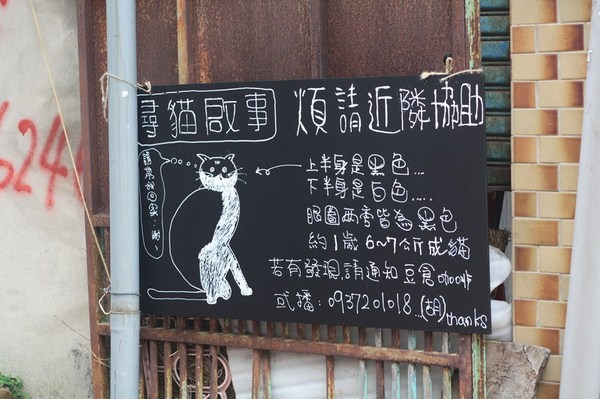 尋貓啟事 煩請近隣協助
請帶我回家 謝
上半身是黑色...
下半身是白色....
眼圈兩旁皆為黑色
約1歲6~7公斤成貓
若有發現,請通知豆倉咖啡
或播:0937201018...(胡)thanks